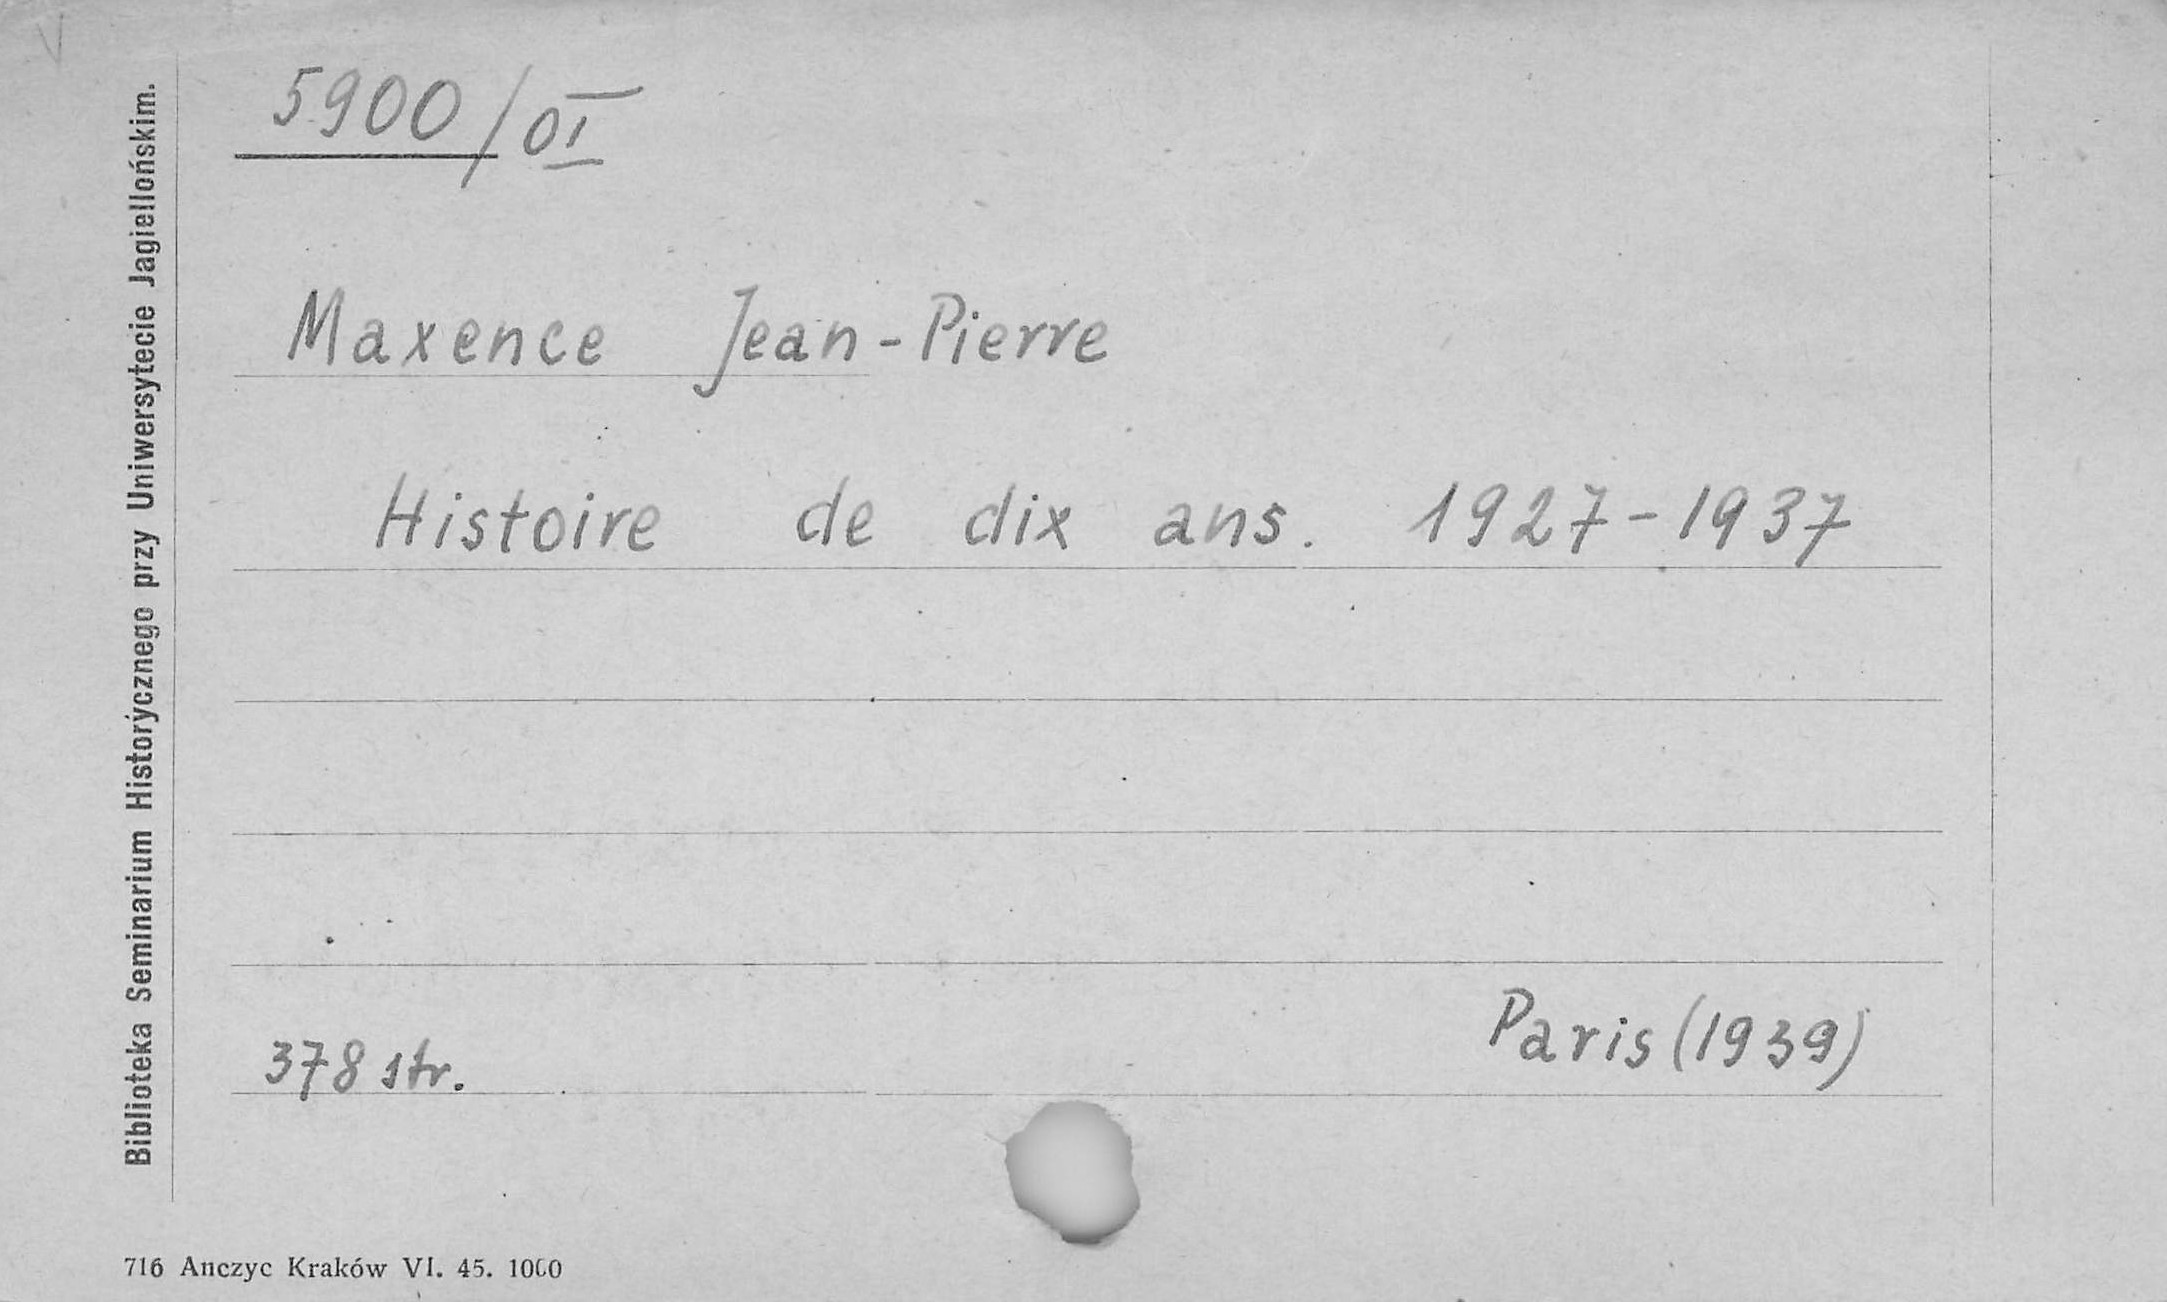 5900/OI
Maxence Jean-Pierre
Histoire de dix ans. 1927-1937
378 str.
Paris (1939)
Biblioteka Seminarium Historycznego przy Uniwersytecie Jagiellońskim.
716 Anczyc Kraków VI. 45. 1000